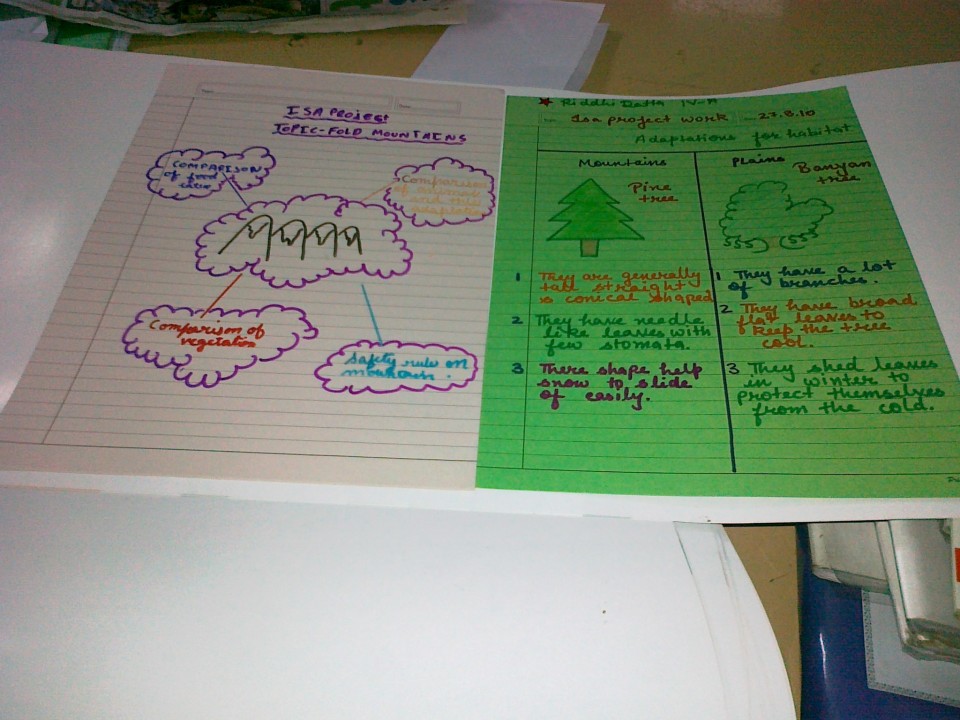 ISA PROJECT
TOPIC-FOLD MOUNTAINS
COMPARISON
of food
Comparison
of
and their
adaptation
Comparison of
vegetation
Safety rules on
mountain.
Riddhi Datta IV-A
Isa project work
27.8.10
Adaptations for habitat
Mountains
Pine
tree
1 They are generally
tall straight
is conical shaped
2 They have needle
like leaves with
few stomata.
3 There shape help
snow to slide
of easily.
Plains
Banyan
tree
1 They have a lot
of branches.
2 They have broad
flat leaves to
keep the tree
cool.
3 They shed leaves
in winter to
protect themselves
from the cold.